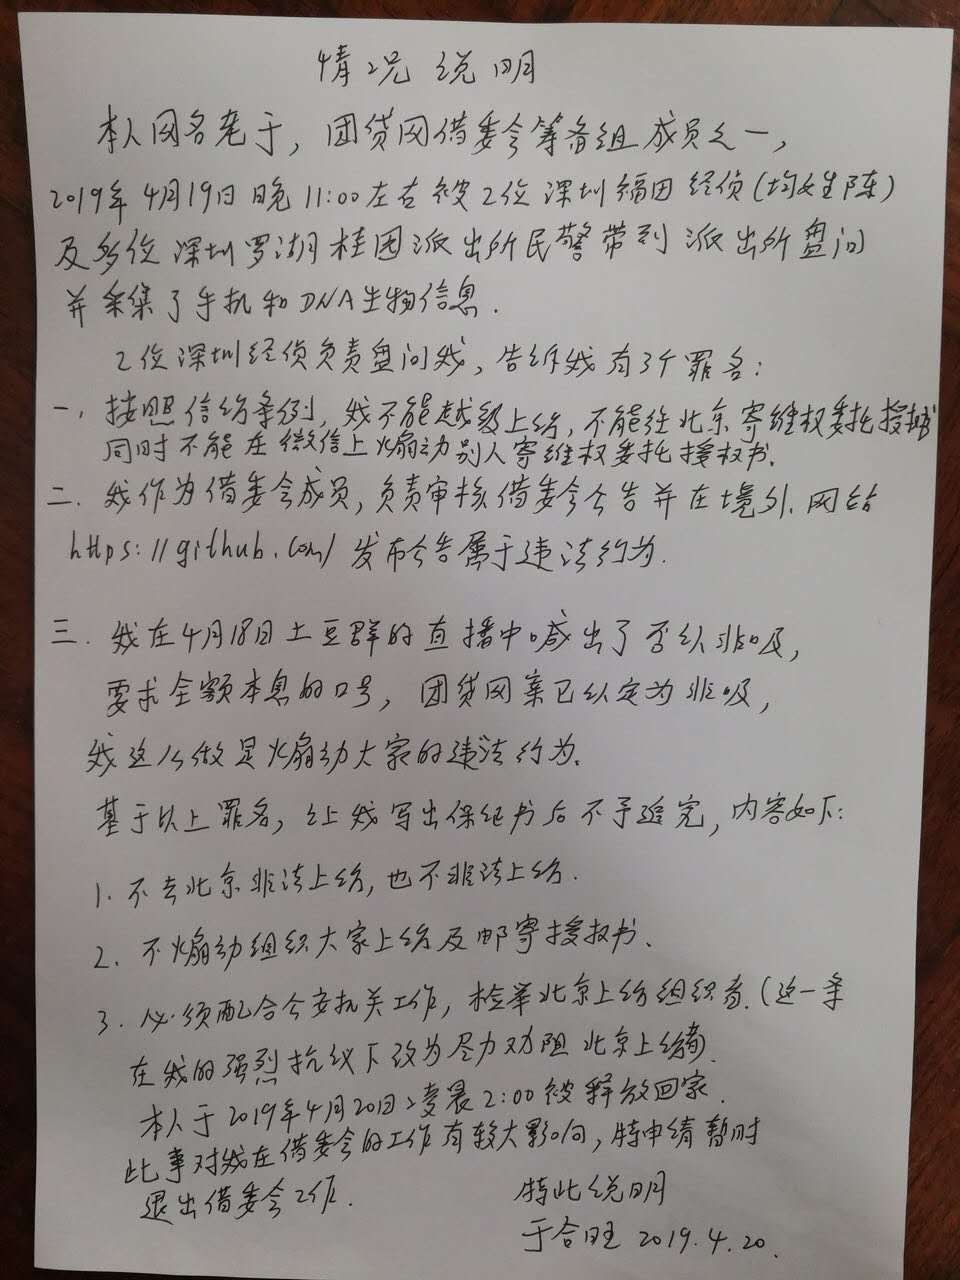 情况说明
本人网名老于，团贷网借委会筹备组成员之一，
2019年4月19日晚11:00左右被2位深圳福田经侦(均姓陈)
及多位深圳罗湖桂园派出所民警带到派出所盘问
并采集了手机和DNA生物信息.
2位深圳经侦负责盘问我，告诉我有3个罪名：
一、按照信访条例，我不能越级上访，不能往北京寄维权委托授权书
同时不能在微信上煽动别人寄维权委托授权书.
二、我作为借委会成员，负责审核借委会公告并在境外网站
https://github.com/发布公告属于违法行为.
三、我在4月18日土豆群的直播中喊出了否认非吸，
要求全额本息的口号，团贷网案已认定为非吸，
我这么做是煽动大家的违法行为.
基于以上罪名，让我写出保证书后不予追究，内容如下：
1.不去北京非法上访，也不非法上访.
2.不煽动组织大家上访及邮寄授权书.
3.必须配合公安机关工作，检举北京上访组织者.(这一条
在我的强烈抗议下改为尽力劝阻北京上访者)
本人于2019年4月20日凌晨2:00被释放回家.
此事对我在借委会的工作有较大影响，特申请暂时
退出借委会工作.
特此说明
于合旺 2019.4.20.